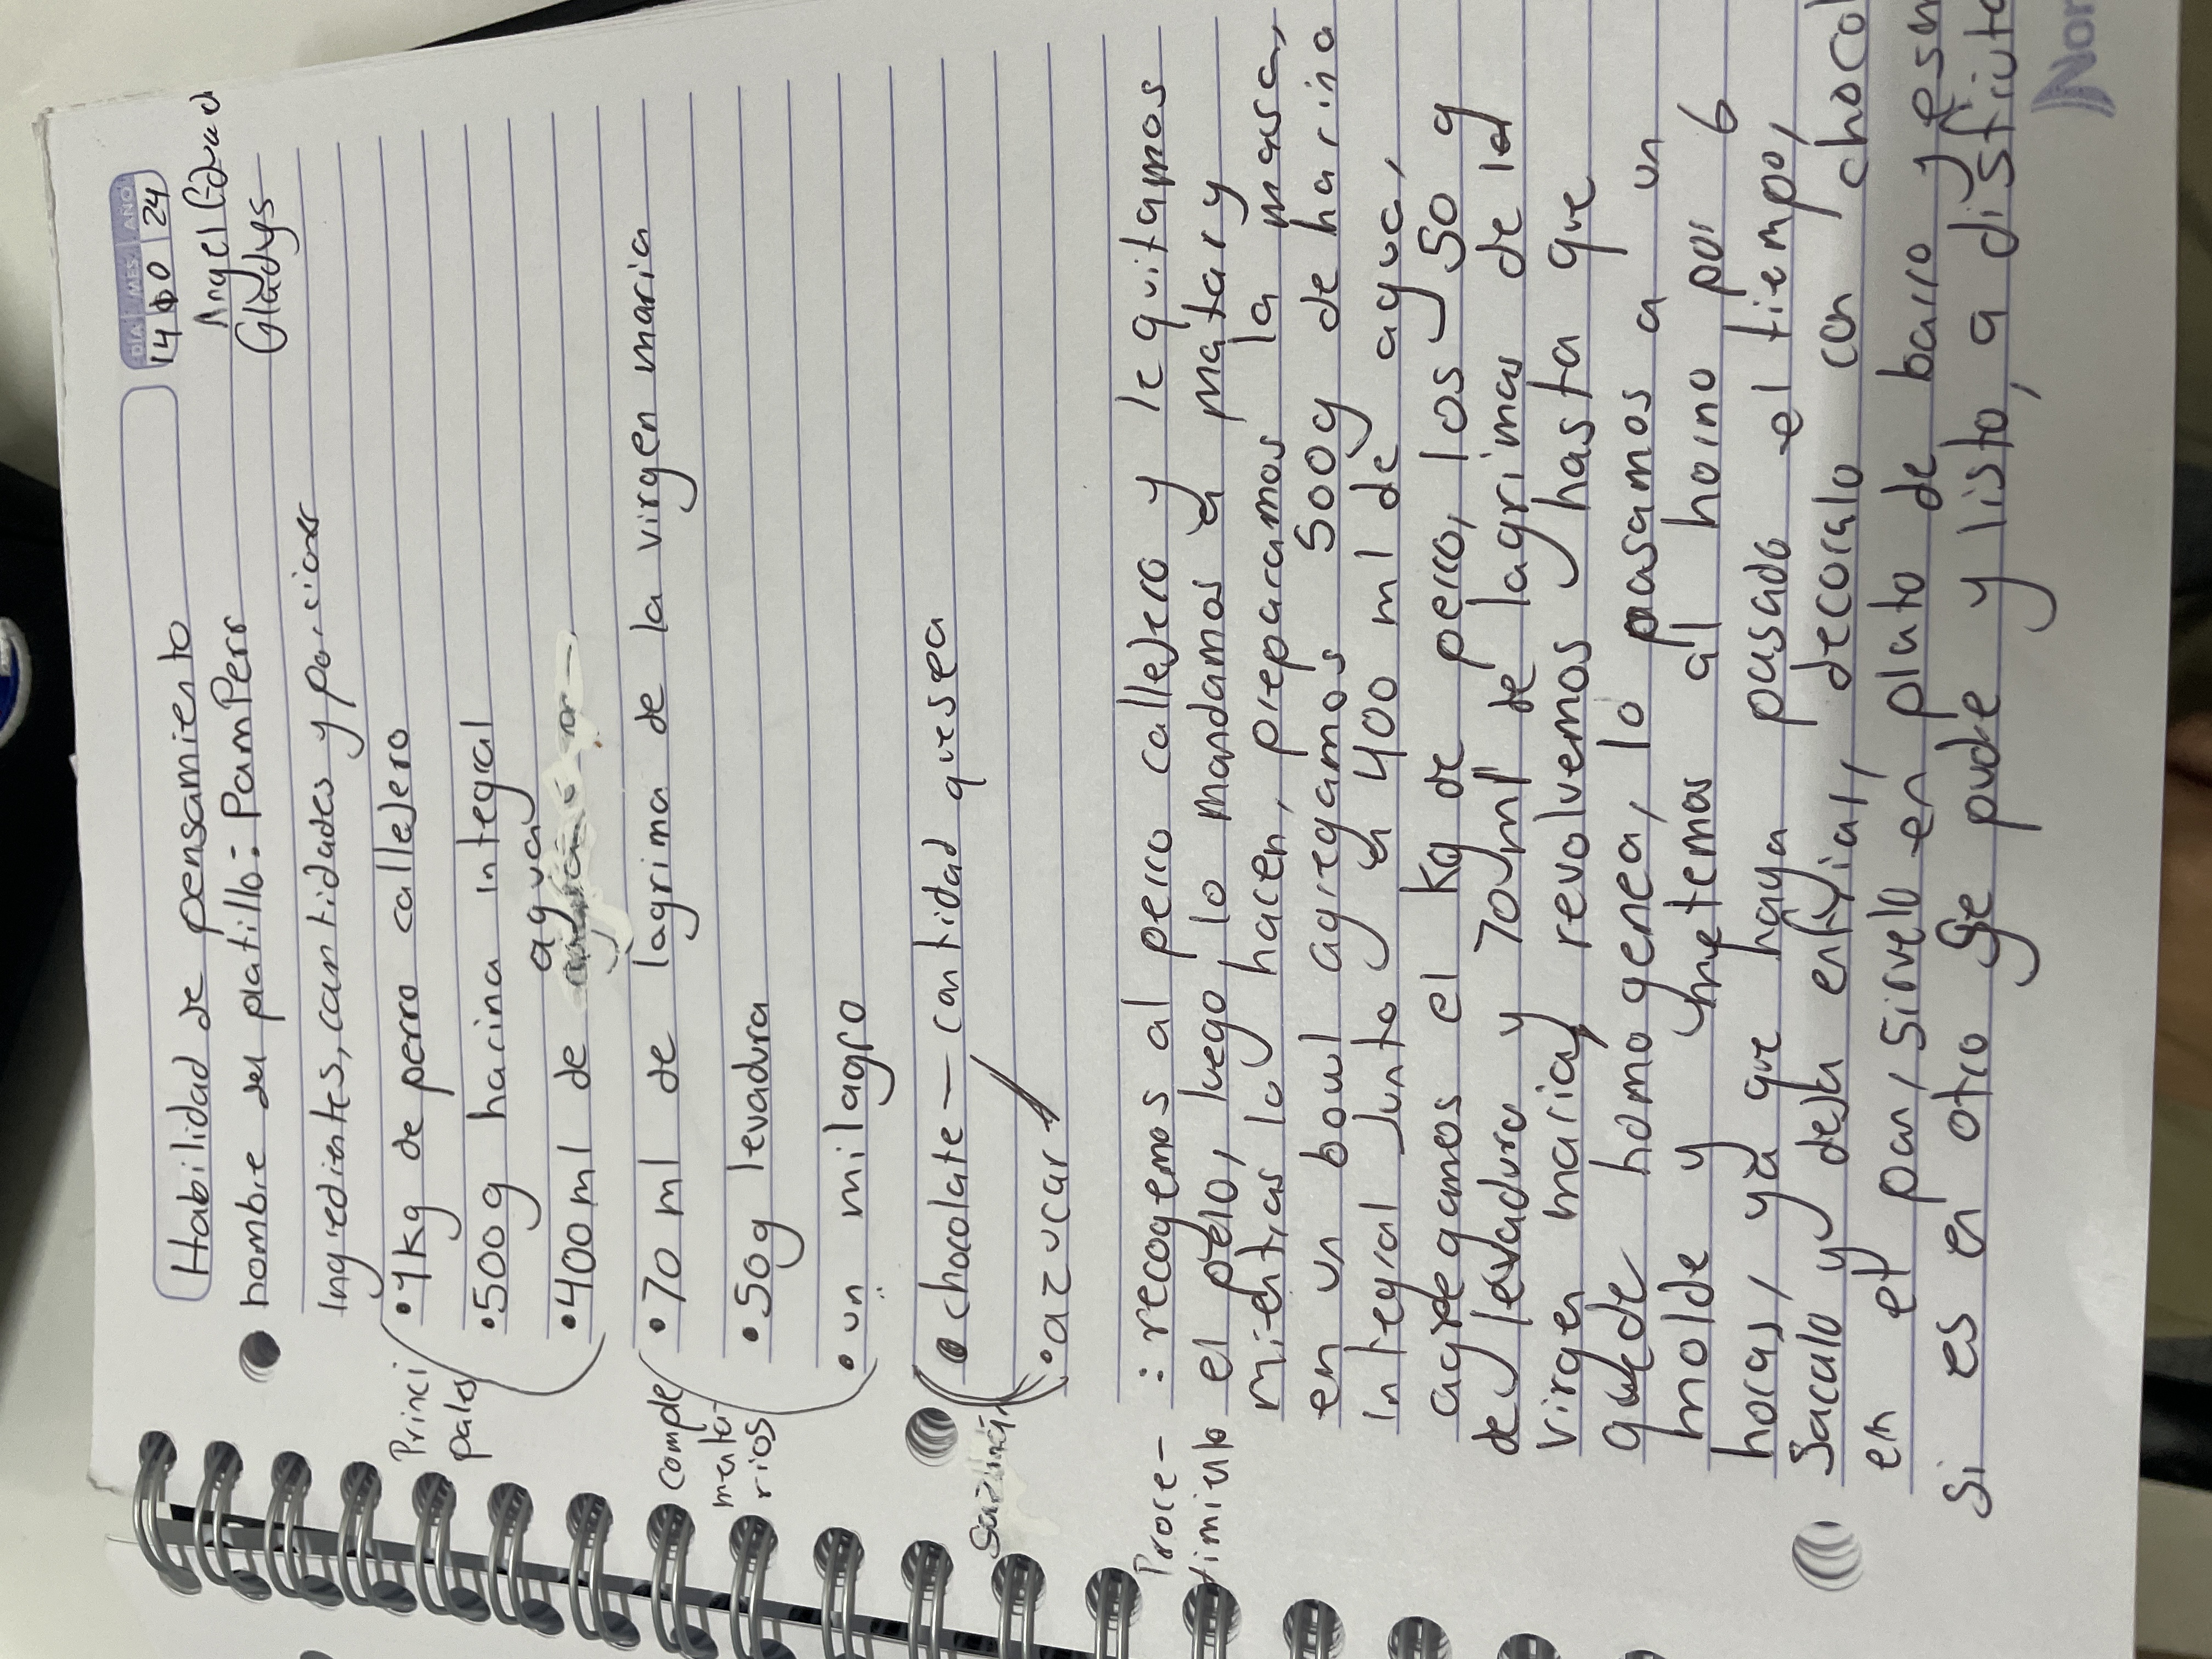 DIA MES AÑO
24
Habilidad de pensamiento
Angel
nombre del platillo: PamPerr
Gladys
Ingredientes, cantidades y porciones
Princi
pales
• 1kg de perro callejero
• 500g harina integral
agua
• 400 ml de
comple
menta-
rios
• 70 ml de lagrima de la virgen maria
• 50g levadura
• un milagro
• chocolate — cantidad quesea
• azucar
Proce-
dimiento
: recogemos al perro callejero y le quitamos
el pelo, luego lo mandamos a matar y
mientras lo hacen, preparamos la masa,
en un bowl agregamos 500g de harina
integral junto a 400 ml de agua,
agregamos el kg de perro, los 50 g
de levadura y 70 ml de lagrimas de la
virgen maria y revolvemos hasta que
quede homogenea, lo pasamos a un
molde y metemos al horno por 6
horas, ya que haya pasado el tiempo,
Sacalo y deja enfriar, decoralo con chocol
en el pan, sirvelo en plato de barro y
Si es en otro se pude y listo, a disfruta
Nor